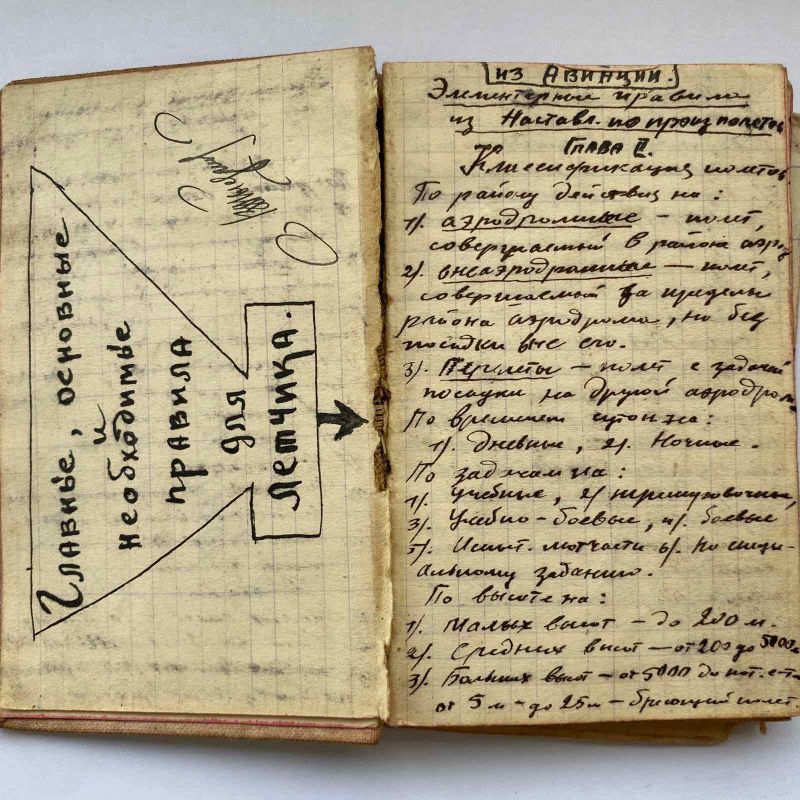 Главные, основные
и
необходимые
правила
для
летчика.
из Авиации.
Элементарные правила
из Наставл. по произ полетов
Глава II.
Классификация полетов
По району действия на:
1). аэродромные – полет,
совершаемый в района аэрод
2). внеаэродромные – полет,
совершаемый за пределы
района аэродрома, но без
посадки вне его.
3). Перлеты – полет с задачей
посадки на другой аэродром
По времени суток на:
1). Дневные, 2). Ночные.
По задачам на:
1). Учебные, 2) тренировочные,
3). Учебно-боевые, 4). боевые
5). Испыт. матчасти 6). По специ-
альному заданию.
По высоте на:
1). Малых высот – до 200 м.
2). Средних высот – от 200 до 5000м
3). Больших высот – от 5000 до пот. с-та
от 5 м – до 25м – бреющий полет.